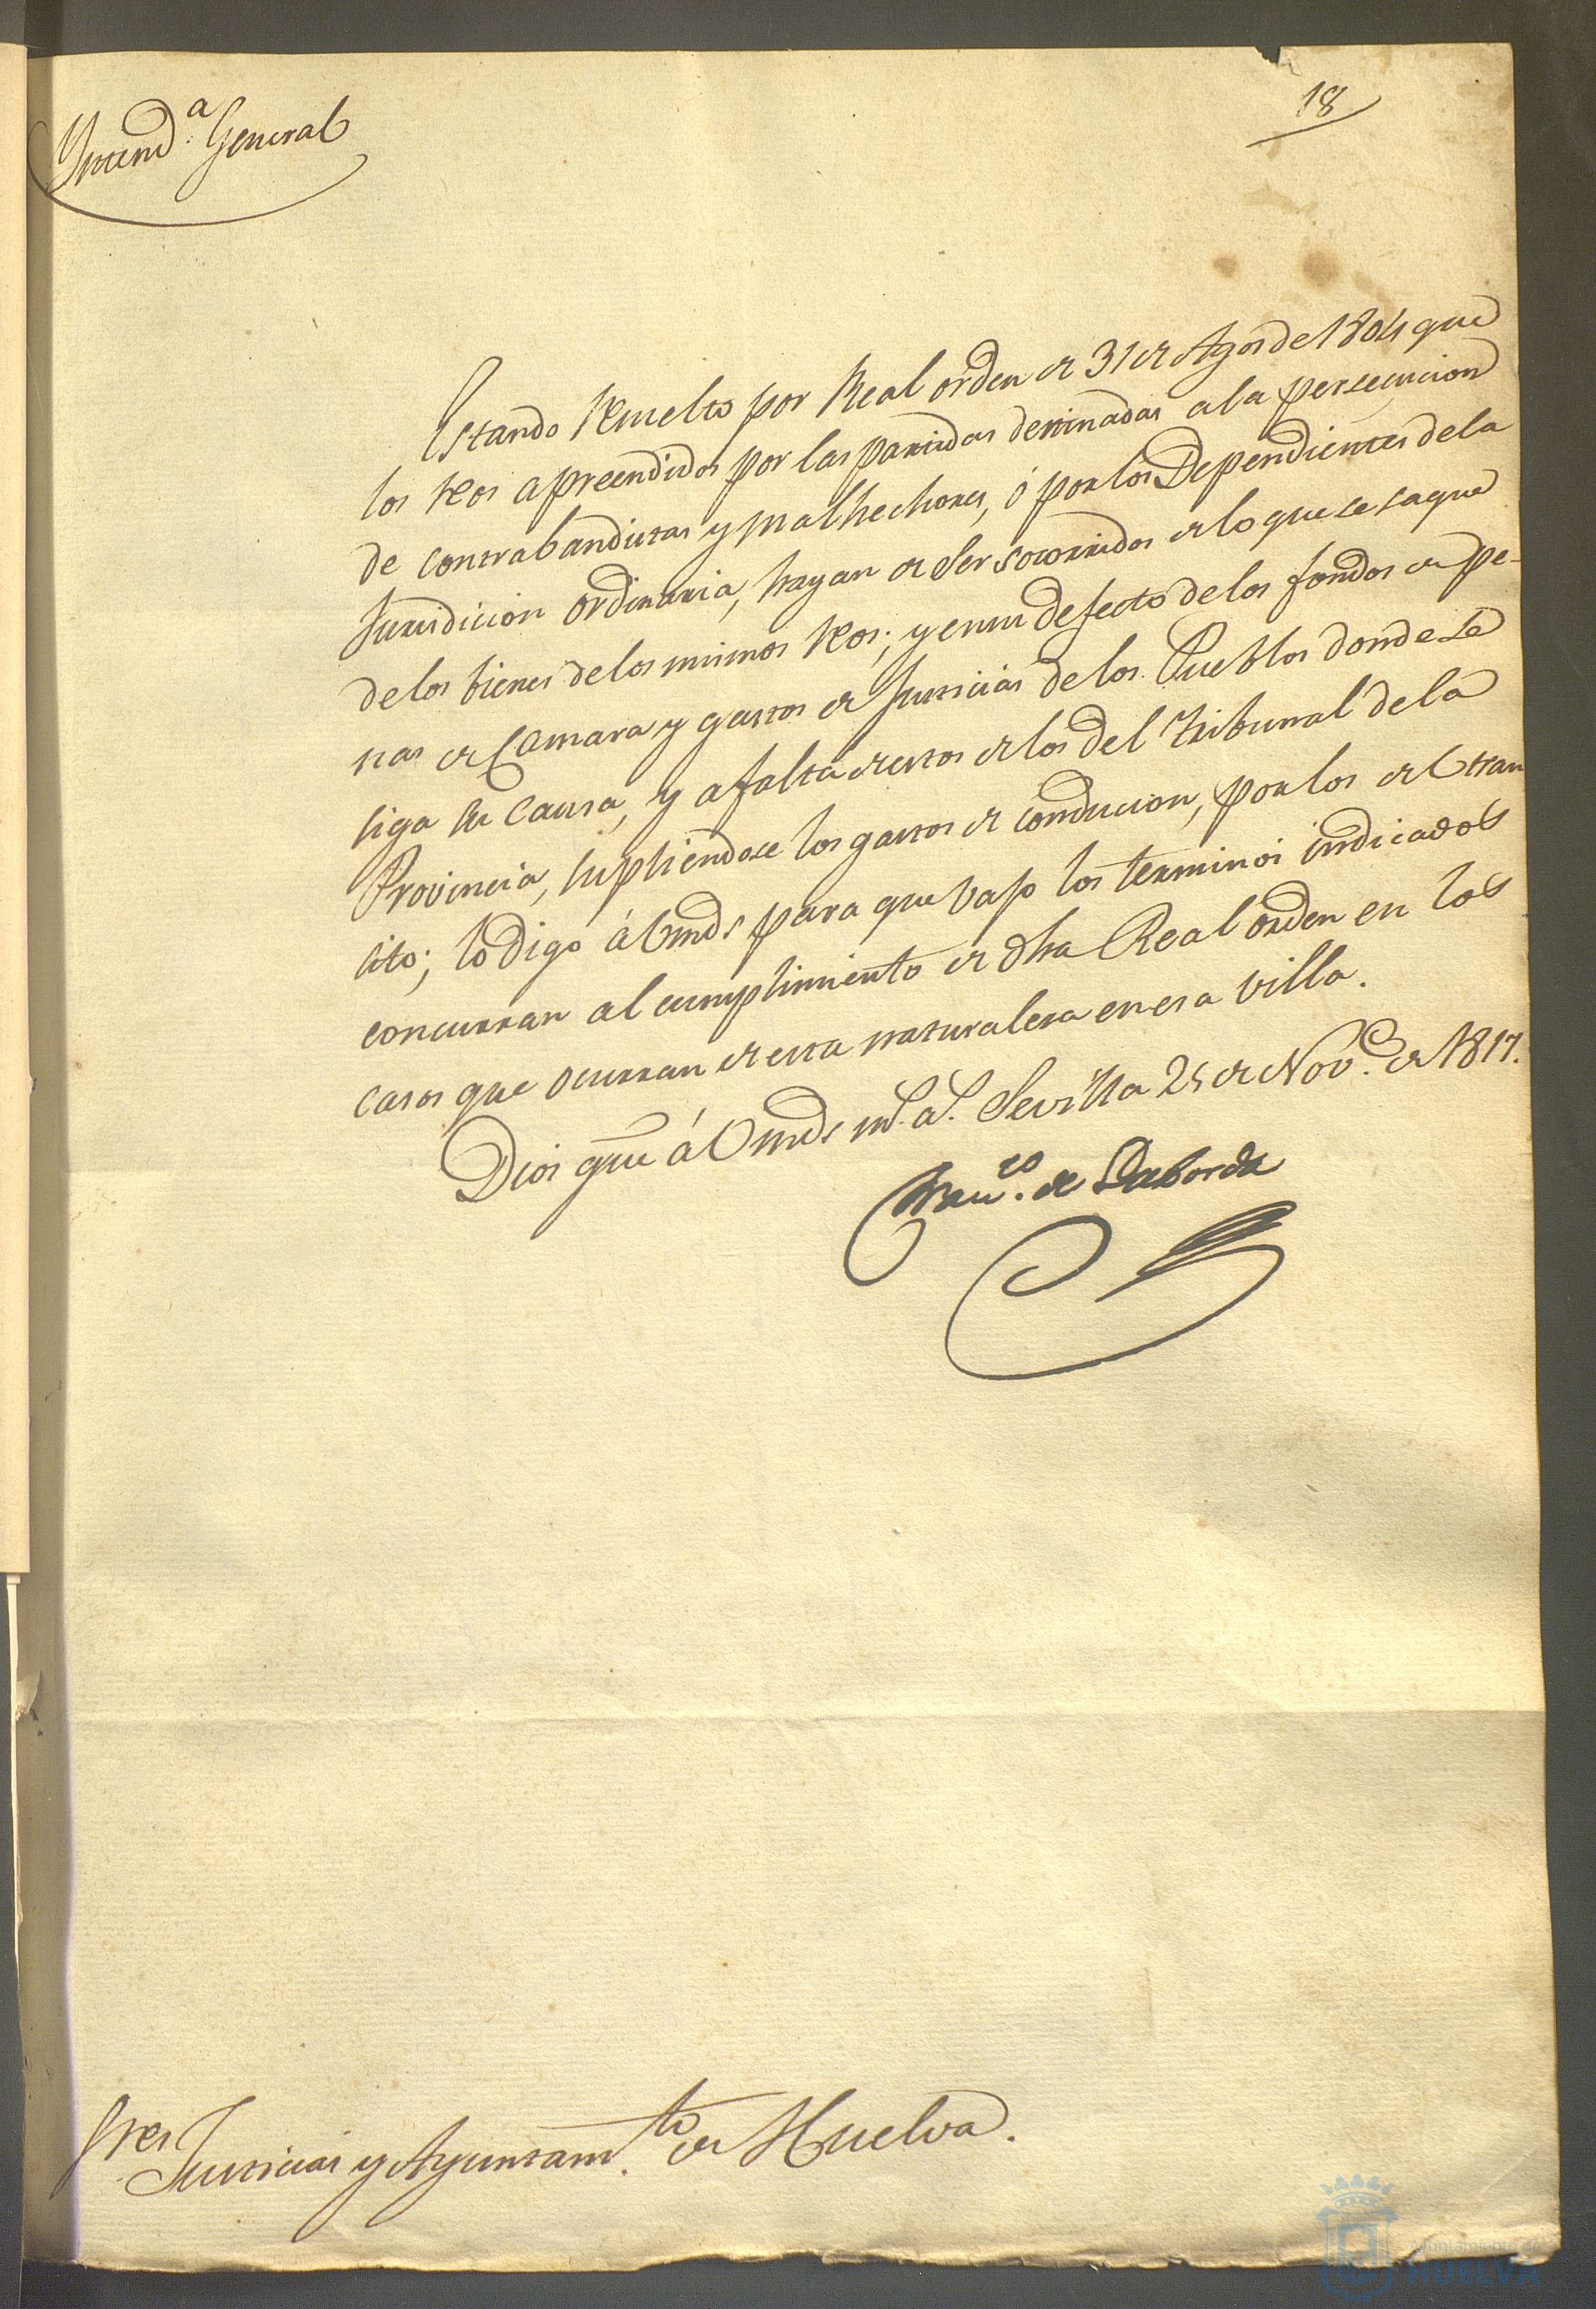 Yntend.ª General
18
Estando resuelto por Real orden de 31 de Agos de 1804 que
los reos apreendidos por las partidas destinadas a la persecucion
de contrabandistas y malhechores, ó por los Dependientes de la
Jurisdicion ordinaria, hayan de ser socorridos de lo que se saque
de los bienes de los mismos reos; y en su defecto de los fondos de pe-
nas de Camara y gastos de Justicias de los Pueblos donde se
siga su causa, y a falta de estos de los del Tribunal de la
Provincia, supliendose los gastos de conducion, por los de Extran
sito; lo digo á Vmds para que bajo los terminos indicados
concurran al cumplimiento de dha Real orden en los
casos que ocurran de esta naturalesa en esa villa.
Dios gue á Vmds m.s a.s Sevilla 25 de Nov.e de 1817.
Fran.co de Laborda
Sres Justicias y Ayuntam.to de Huelva.
Ayuntamiento de
HUELVA